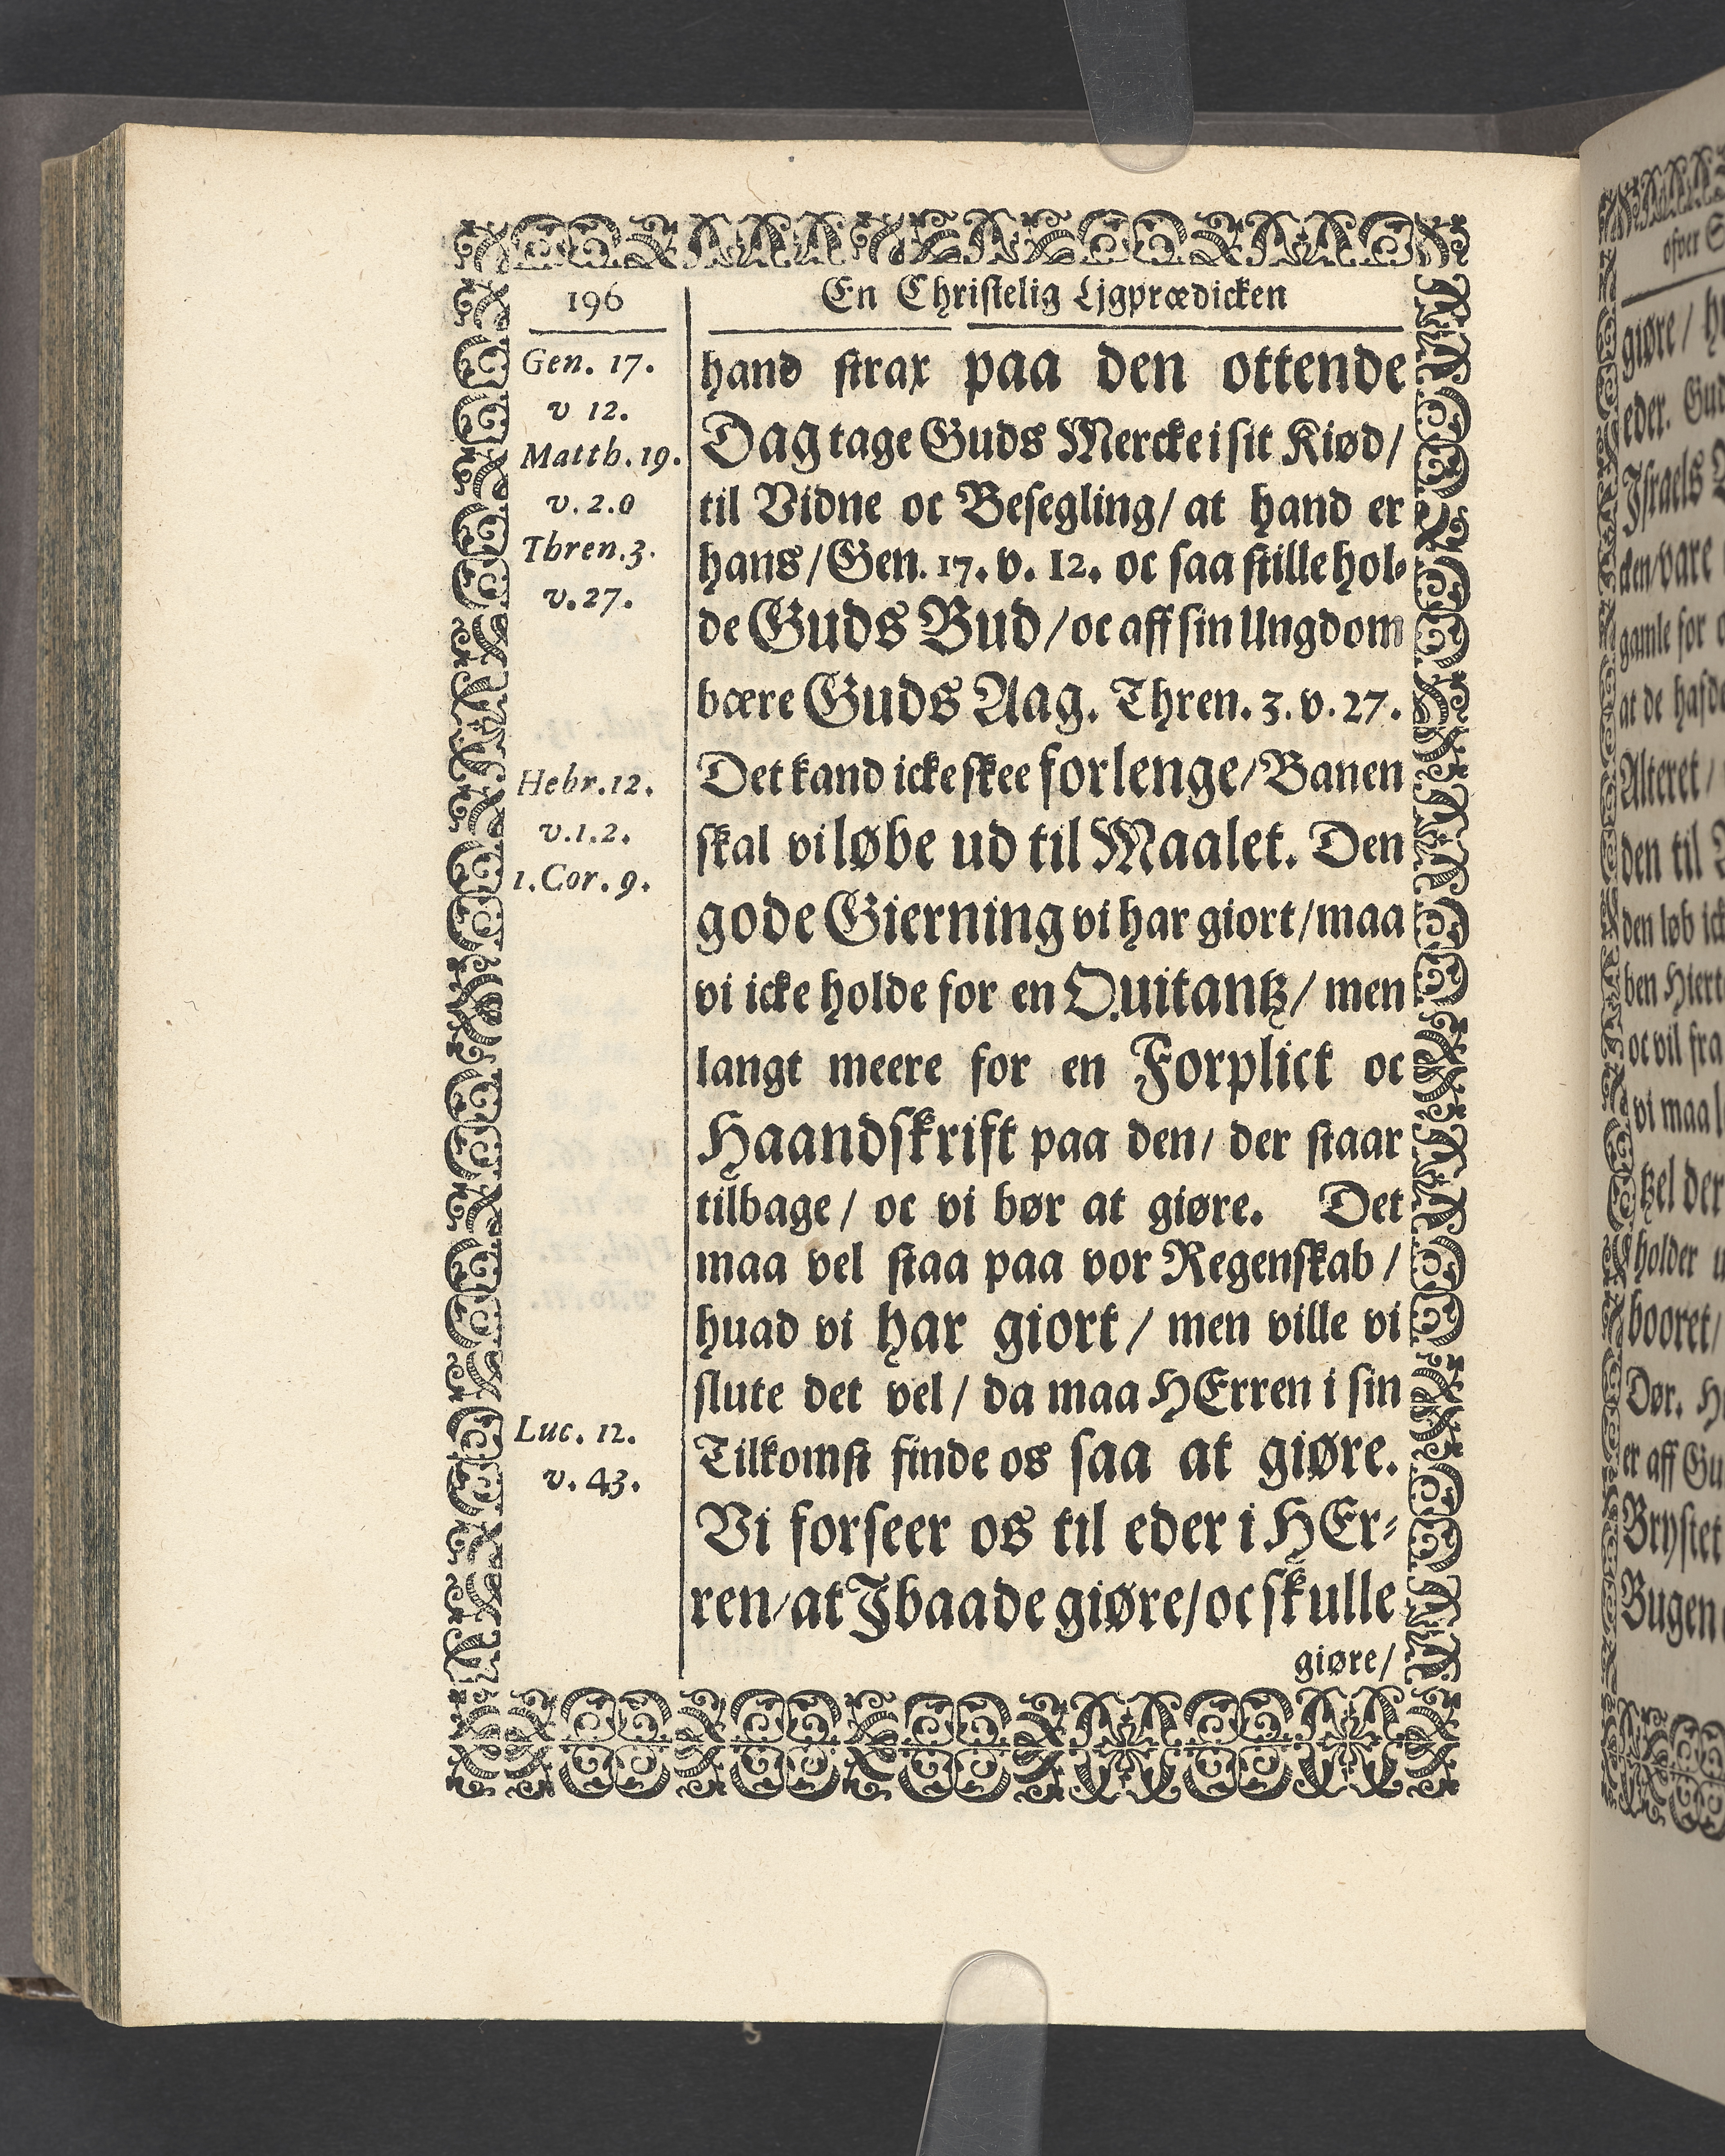 196
En Christelig Ljgprædicken
Gen. 17.
v 12.
Matth. 19.
v. 2.0
Thren. 3.
v. 27.
Hebr. 12.
v. 1. 2.
1. Cor. 9.
Luc. 12.
v. 43.
hand strax paa den ottende
Dag tage Guds Mercke i sit Kiød/
til Vidne oc Besegling/ at hand er
hans/ Gen. 17. v. 12. oc saa stille hol-
de Guds Bud/ oc aff sin Ungdom
bære Guds Aag. Thren. 3. v. 27.
Det kand icke skee forlenge/ Banen
skal vi løbe ud til Maalet. Den
gode Gierning vi har giort/ maa
vi icke holde for en Quitantz/ men
langt meere for en Forplict oc
Haandskrift paa den/ der staar
tilbage/ oc vi bør at giøre. Det
maa vel staa paa vor Regenskab/
huad vi har giort/ men ville vi
slute det vel/ da maa HErren i sin
Tilkomst finde os saa at giøre.
Vi forseer os til eder i HEr-
ren/ at J baade giøre/ oc skulle
giøre/
ofver
giøre/
eder. Gud
Jsraels
den/ vare
gamle for
at de hafde
Alteret/
den til
den løb ick
ben Hiert
oc vil fra
vi maa
tzel der
holder
booret/
Dør.
er aff Gu
Brystet
Bugen